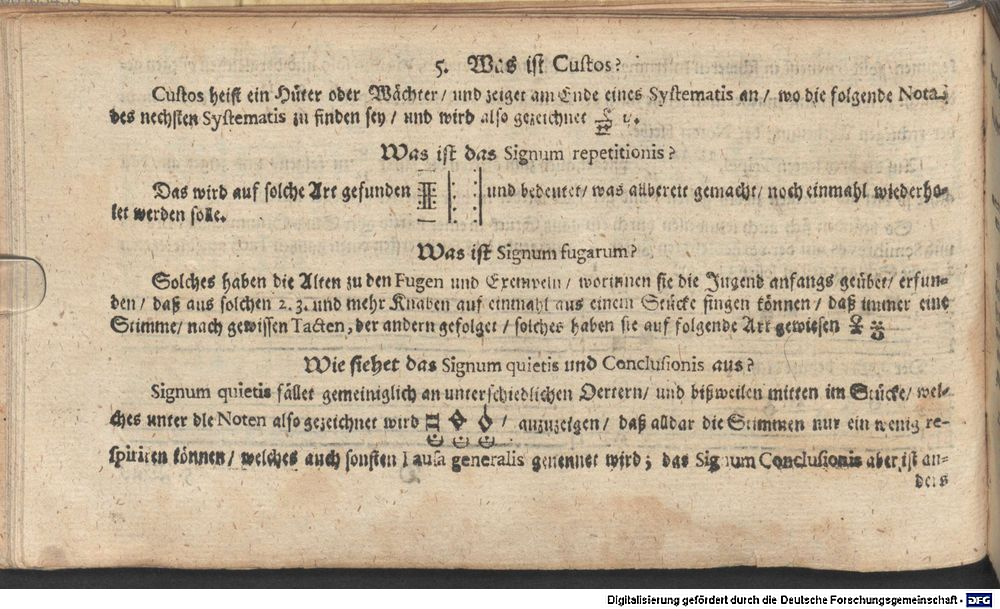 5. Was ist Custos?
Custos heist ein Hüter oder Wächter/ und zeiget am Ende eines Systematis an/ wo die folgende Nota
des nechsten Systematis zu finden sey/ und wird also gezeichnet
Was ist das Signum repetitionis?
Das wird auf solche Art gefunden und bedeutet/ was allbereit gemacht/ noch einmahl wiederho-
let werden solle.
Was ist Signum fugarum?
Solches haben die Alten zu den Fugen und Exempeln/ worinnen sie die Jugend anfangs geübet/ erfun-
den/ daß aus solchen 2. 3. und mehr Knaben auf einmahl aus einem Stücke singen können/ daß immer eine
Stimme/ nach gewissen Tacten, der andern gefolget/ solches haben sie auf folgende Art gewiesen
Wie siehet das Signum quietis und Conclusionis aus?
Signum quietis fället gemeiniglich an unterschiedlichen Oertern/ und bißweilen mitten im Stücke/ wel-
ches unter die Noten also gezeichnet wird / anzuzeigen/ daß alldar die Stimmen nur ein wenig re-
spiriren können/ welches auch sonsten Pausa generalis genennet wird; das Signum Conclusionis aber ist an-
ders
Digitalisierung gefördert durch die Deutsche Forschungsgemeinschaft - DFG